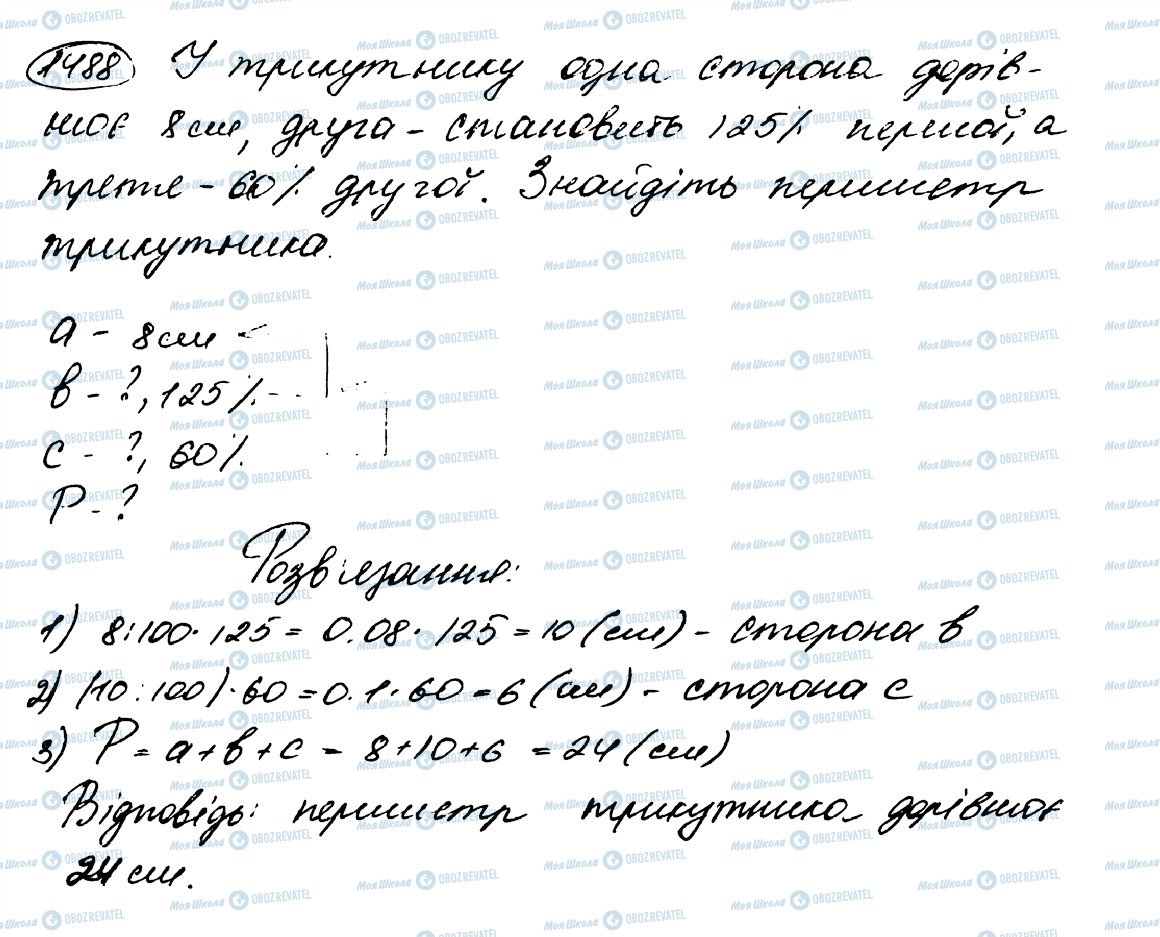 1488 У трикутнику одна сторона дорів-
нює 8 см, друга - становить 125% першої, а
третя - 60% другої. Знайдіть периметр
трикутника.
a - 8 см
b - ?, 125%
c - ?, 60%
P - ?
Розв'язання:
1) 8:100·125 = 0.08·125 = 10 (см) - сторона b
2) (10:100)·60 = 0.1·60 = 6 (см) - сторона c
3) P = a+b+c = 8+10+6 = 24 (см)
Відповідь: периметр трикутника дорівнює
24 см.